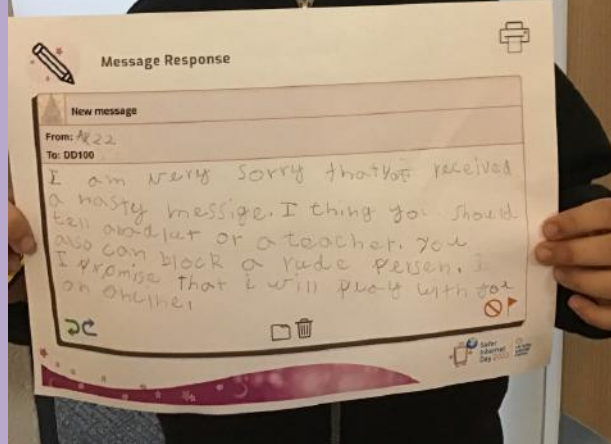 Message Response
New message
From: AR22
To: DD100
I am very sorry that you received
a nasty messige. I thing you should
tell anadlut or a teacher. you
also can block a rude persen. I
I promise that i will pway with you
on onlinei
Safer
Internet
Day 2022